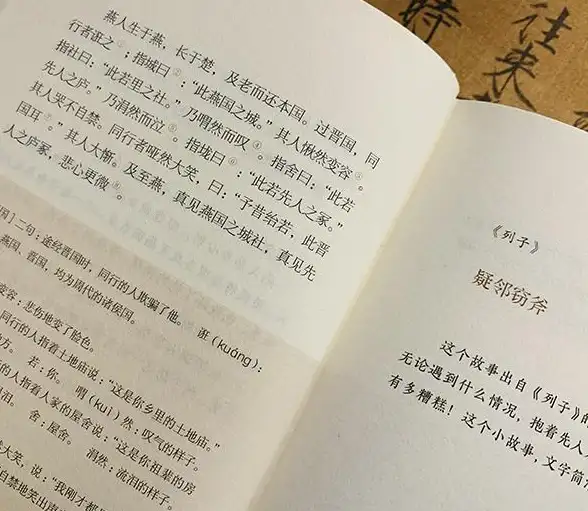 往来
時
燕人生于燕，长于楚，及老而还本国。过晋国，同
行者诳之①；指城曰②："此燕国之城。"其人愀然变容③。
指社曰："此若里之社。"乃喟然而叹④。指舍曰："此若
先人之庐。"乃涓然而泣⑤。指垅曰⑥："此若先人之冢。"
其人哭不自禁。同行者哑然大笑，曰："予昔绐若，此晋
国耳⑦。"其人大惭。及至燕，真见燕国之城社，真见先
人之庐冢，悲心更微⑧。
国］二句：途经晋国时，同行的人欺骗了他。 诳（kuáng）：
燕国、晋国，均为周代的诸侯国。
变容：悲伤地变了脸色。
同行的人指着土地庙说："这是你乡里的土地庙。"
地方。 若：你。 喟（kuì）然：叹气的样子。
的人指着人家的屋舍说："这是你祖辈的房
泪。 舍：屋舍。 涓然：流泪的样子。
大笑，说："我刚才都
自禁地笑出声
《列子》
疑邻窃斧
这个故事出自《列子》的
无论遇到什么情况，抱着先入
有多糟糕！这个小故事，文字简